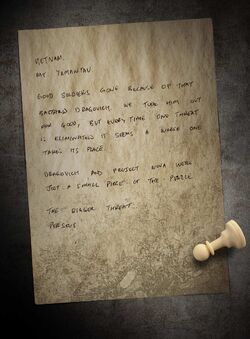 VIETNAM.
MT. YAMANTAU
GOOD SOLDIERS GONE BECAUSE OF THAT
BASTARD DRAGOVICH. WE TOOK HIM OUT
FOR GOOD, BUT EVERY TIME ONE THREAT
IS ELIMINATED IT SEEMS A WORSE ONE
TAKES ITS PLACE.
DRAGOVICH AND PROJECT NOVA WERE
JUST A SMALL PIECE OF THE PUZZLE.
THE BIGGER THREAT...
PERSEUS